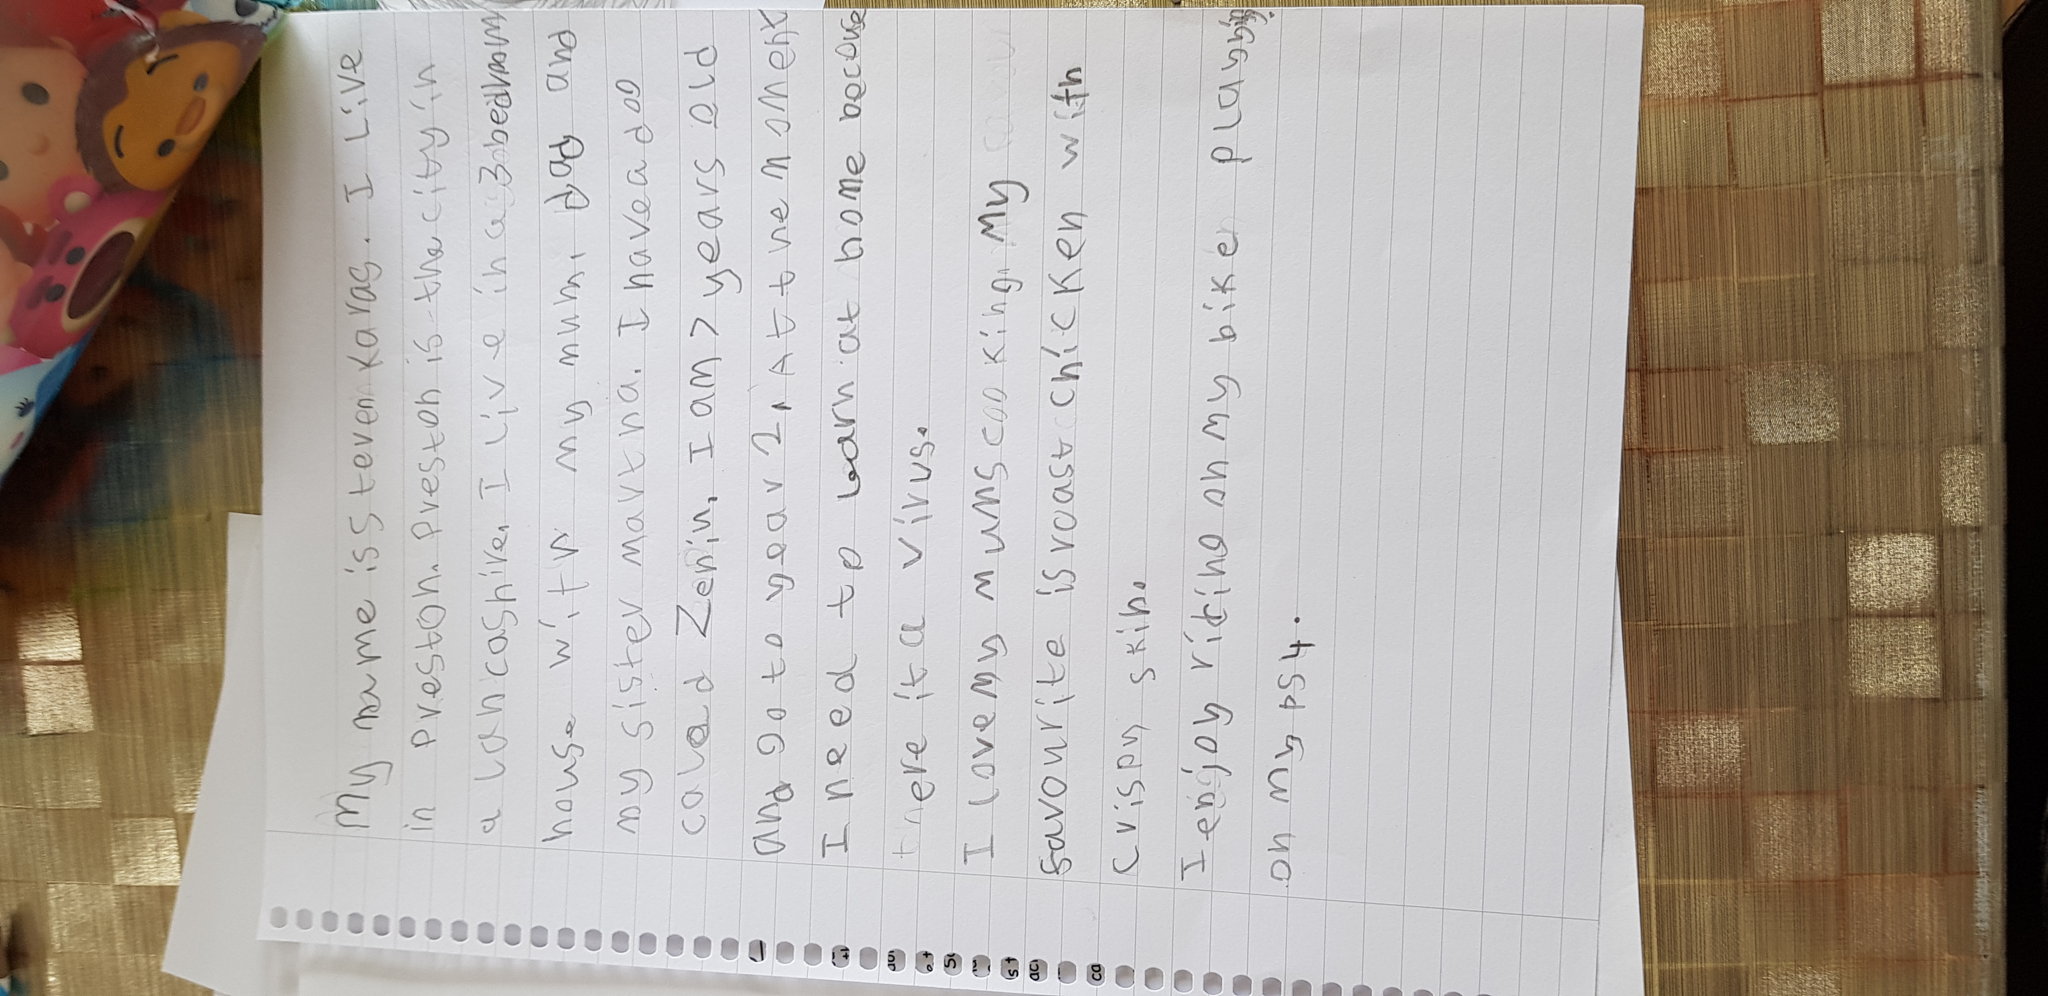 My name is steven karas. I Live
in Preston. Preston is the city in
a lancashire. I Live in a 3 bedroom
house with my mum, dad and
my sister martina. I have a dog
caled Zenin. I am 7 years old
and go to year 2. At the moment
I need to learn at home because
there it a virus.
I love my mums cooking. My
favourite is roast chicken with
crispy skin.
I enjoy riding on my bike playing
on my ps4.